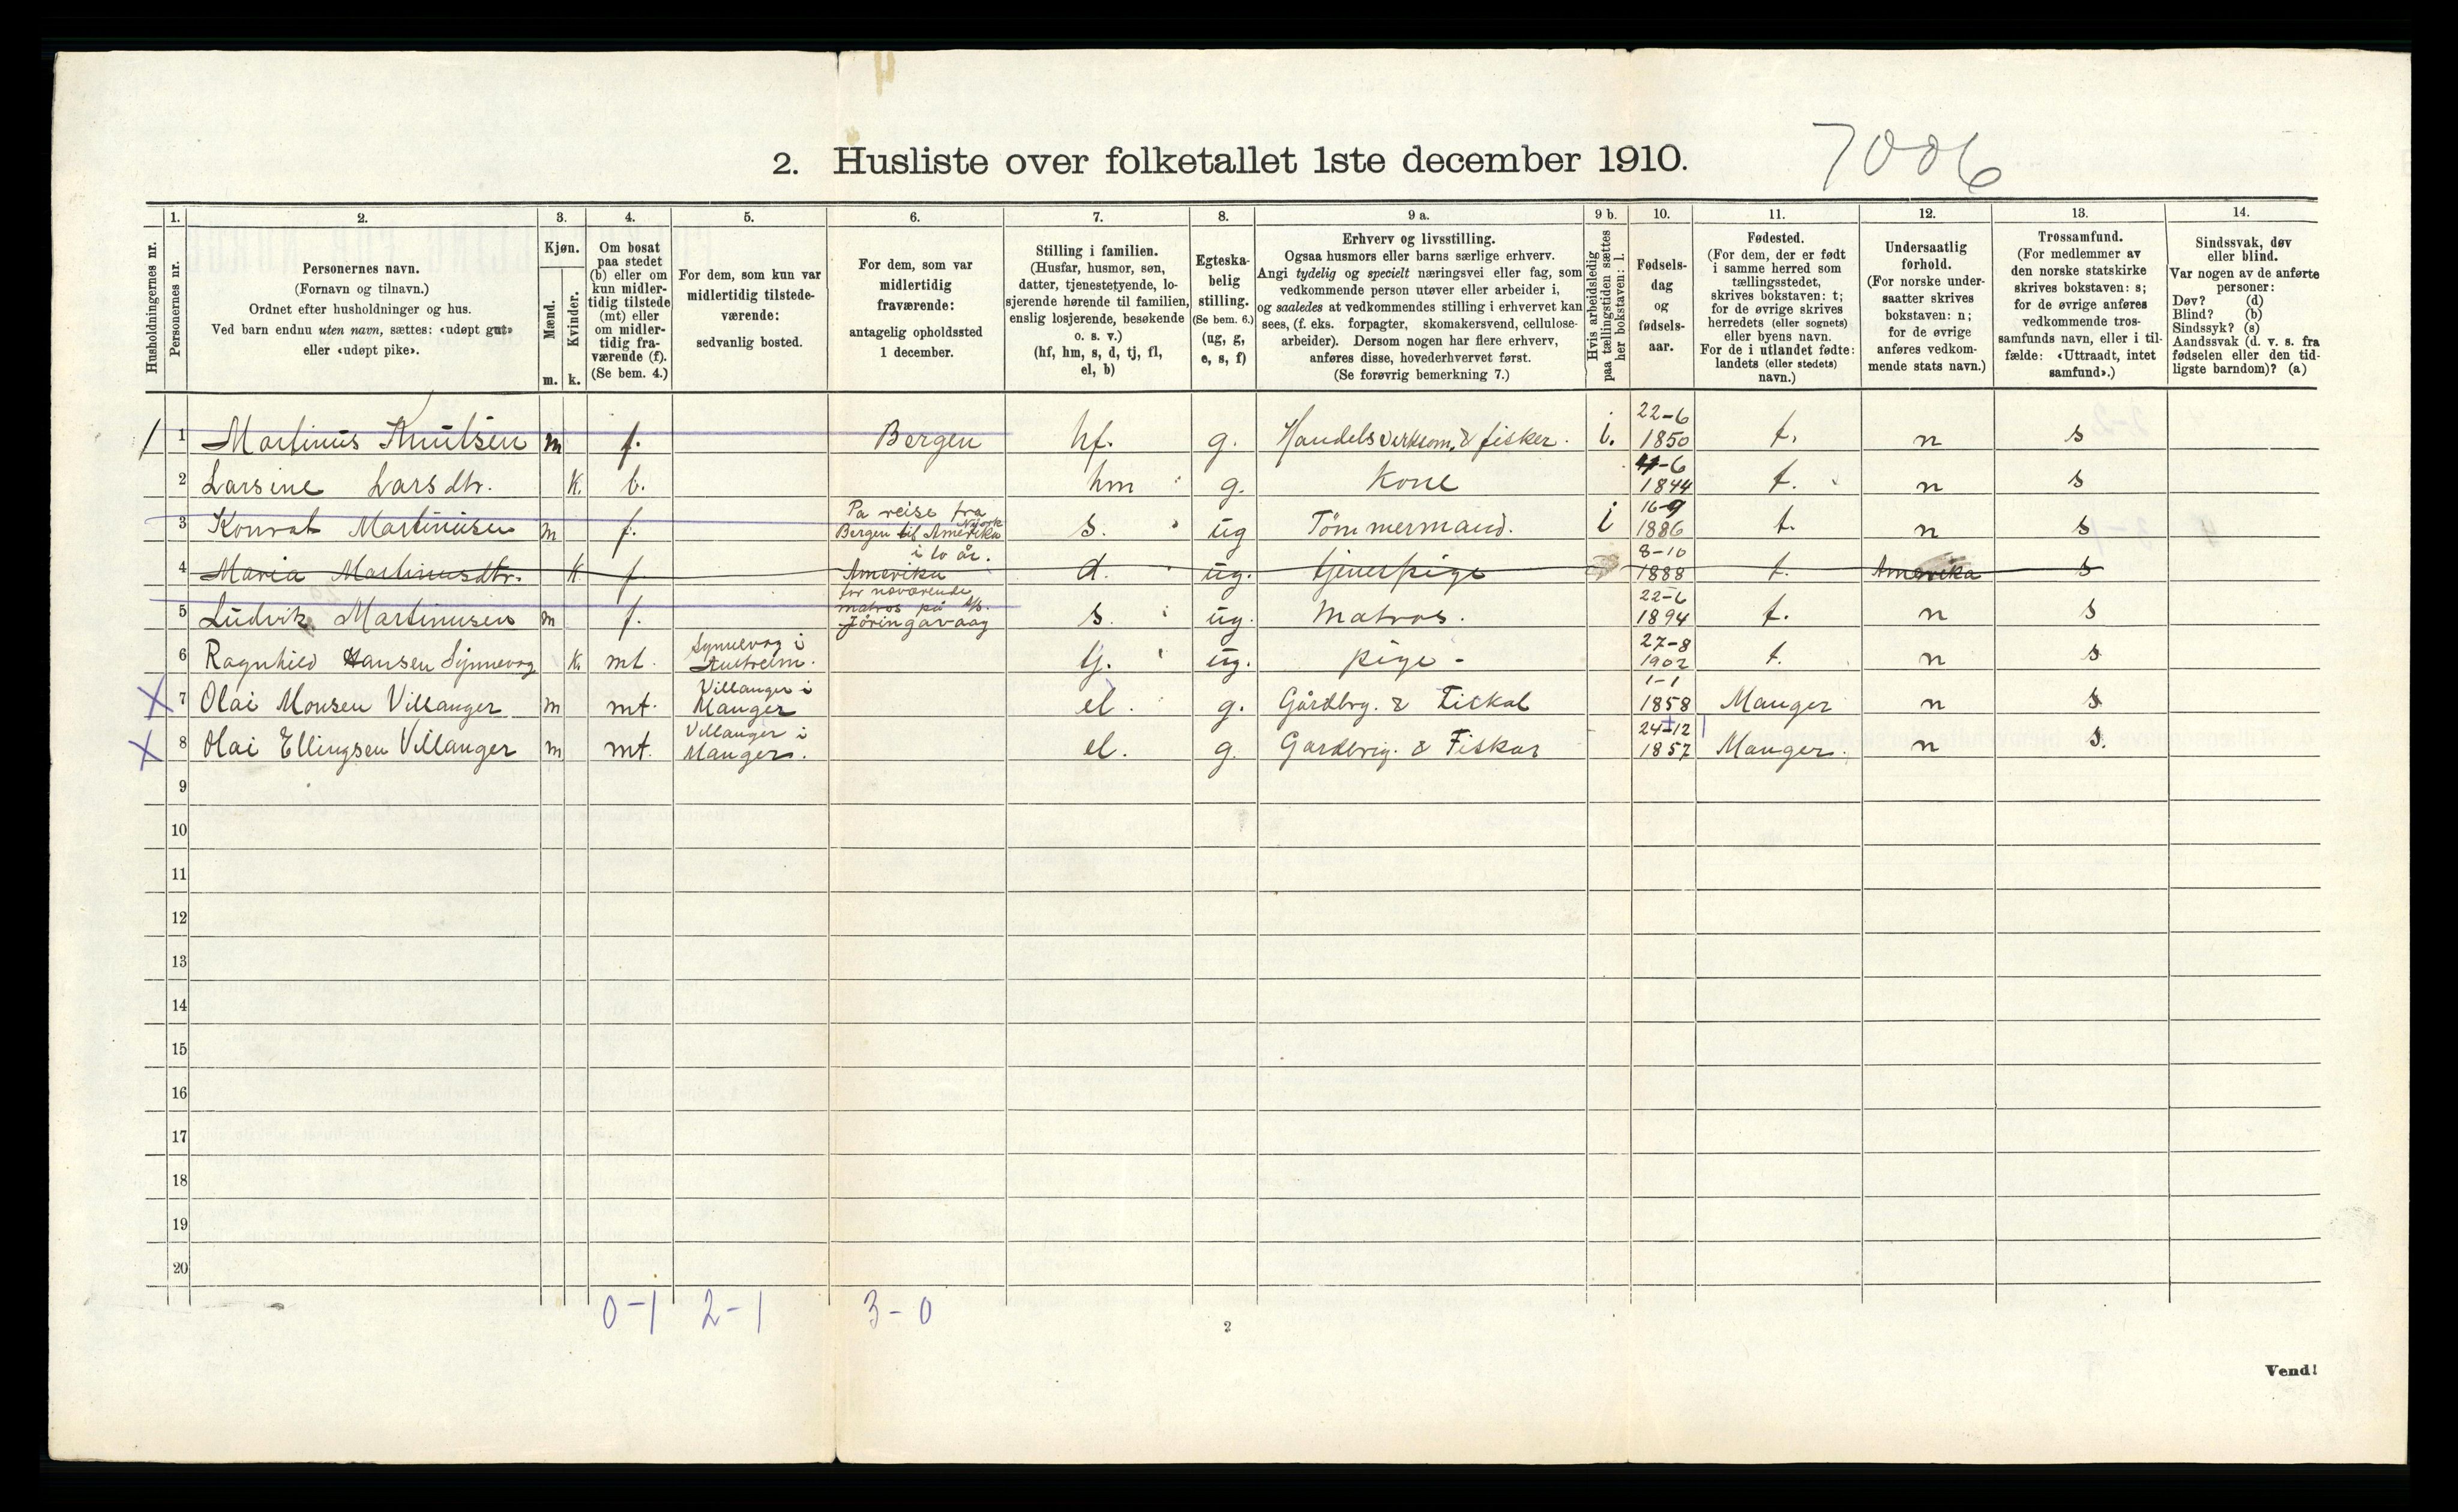 7006
2. Husliste over folketallet 1ste december 1910.
1. 2. 3. 4. 5. 6. 7. 8. 9 a. 9 b. 10. 11. 12. 13. 14.
Husholdningernes nr.
Personernes nr.
Personernes navn.
(Fornavn og tilnavn.)
Ordnet efter husholdninger og hus.
Ved barn endnu uten navn, sættes: «udøpt gut»
eller «udøpt pike».
Kjøn.
Mænd.
Kvinder.
m. k.
Om bosat
paa stedet
(b) eller om
kun midler-
tidig tilstede
(mt) eller
om midler-
tidig fra-
værende (f).
(Se bem. 4.)
For dem, som kun var
midlertidig tilstede-
værende:
sedvanlig bosted.
For dem, som var
midlertidig
fraværende:
antagelig opholdssted
1 december.
Stilling i familien.
(Husfar, husmor, søn,
datter, tjenestetyende, lo-
sjerende hørende til familien,
enslig losjerende, besøkende
o. s. v.)
(hf, hm, s, d, tj, fl,
el, b)
Egteska-
belig
stilling.
(Se bem. 6.)
(ug, g,
e, s, f)
Erhverv og livsstilling.
Ogsaa husmors eller barns særlige erhverv.
Angi tydelig og specielt næringsvei eller fag, som
vedkommende person utøver eller arbeider i,
og saaledes at vedkommendes stilling i erhvervet kan
sees, (f. eks. forpagter, skomakersvend, cellulose-
arbeider). Dersom nogen har flere erhverv,
anføres disse, hovederhvervet først.
(Se forøvrig bemerkning 7.)
Hvis arbeidsledig
paa tællingstiden sættes
her bokstaven: l.
Fødsels-
dag
og
fødsels-
aar.
Fødested.
(For dem, der er født
i samme herred som
tællingsstedet,
skrives bokstaven: t;
for de øvrige skrives
herredets (eller sognets)
eller byens navn.
For de i utlandet fødte:
landets (eller stedets)
navn.)
Undersaatlig
forhold.
(For norske under-
saatter skrives
bokstaven: n;
for de øvrige
anføres vedkom-
mende stats navn.)
Trossamfund.
(For medlemmer av
den norske statskirke
skrives bokstaven: s;
for de øvrige anføres
vedkommende tros-
samfunds navn, eller i til-
fælde: «Uttraadt, intet
samfund».)
Sindssvak, døv
eller blind.
Var nogen av de anførte
personer:
Døv? (d)
Blind? (b)
Sindssyk? (s)
Aandssvak (d. v. s. fra
fødselen eller den tid-
ligste barndom)? (a)
1 1 Martinus Knutsen m f. Bergen hf. g. Handelsvirksom. & fisker. i. 22-6 1850 t. n s
2 Larsine Larsdtr. k. b. hm g. Kone 4-6 1844 t. n s
3 Konrat Martinusen m f. Pa reise fra Bergen til Amerika i to år. s. ug Tömmermand. i 16-9 1886 t. n s
4 Maria Martinusdtr. k f Amerika d. ug. tjenerpige 8-10 1888 t. Amerika s
5 Ludvik Martinusen m f. for nøværende matros på s. ug. Matros. 22-6 1894 t. n s
6 Ragnhild Hansen Synnevog k. mt. Synnevog i Austreim. tj. ug. pige - 27-8 1902 t. n s
7 Olai Monsen Villanger m mt. Villanger i Manger el. g. Gårdbrg. & Fiskal 1-1 1858 Manger n s
8 Olai Ellingsen Villanger m mt. Villanger i Manger. el. g. Gardbrig. & Fiskar 24-12 1857 Manger. n s.
9
10
11
12
13
14
15
16
17
18
19
20
0-1 2-1 3-0
2
Vend!